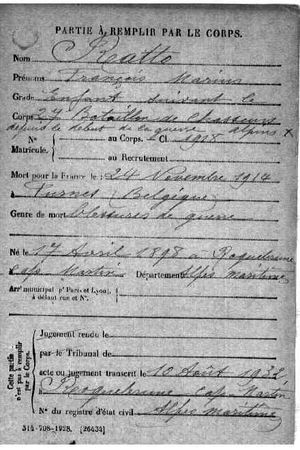 PARTIE À REMPLIR PAR LE CORPS.
Nom Reatto
Prénoms François Marius
Grade Enfant suivant le
Corps 27e Bataillon de Chasseurs
depuis le début de la guerre alpins
N° au Corps. Cl. 1918
Matricule. au Recrutement
Mort pour la France le 24 Novembre 1914
à Furnes (Belgique)
Genre de mort blessures de guerre
Né le 17 Avril 1898 à Roquebrune
Cap Martin Département Alpes maritimes
Arrt municipal (pr Paris et Lyon),
à défaut rue et N°.
Cette partie n'est pas à remplir par le Corps.
Jugement rendu le
par le Tribunal de
acte ou jugement transcrit le 10 Août 1932
à Roquebrune Cap Martin
N° du registre d'état civil Alpes maritimes
514-708-1928. [26434]